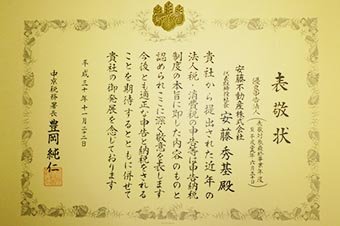 表敬状
優良申告法人
安藤不動産株式会社
代表取締役社長
安藤秀基殿
貴社から提出された近年の
法人税・消費税申告等は申告納税
制度の本旨に即した内容のものと
認められここに深く敬意を表します
今後とも適正な申告と納税をされる
ことを期待するとともに併せて
貴社の御発展を念じております
平成三十年十一月二十二日
中京税務署長
豊岡純仁